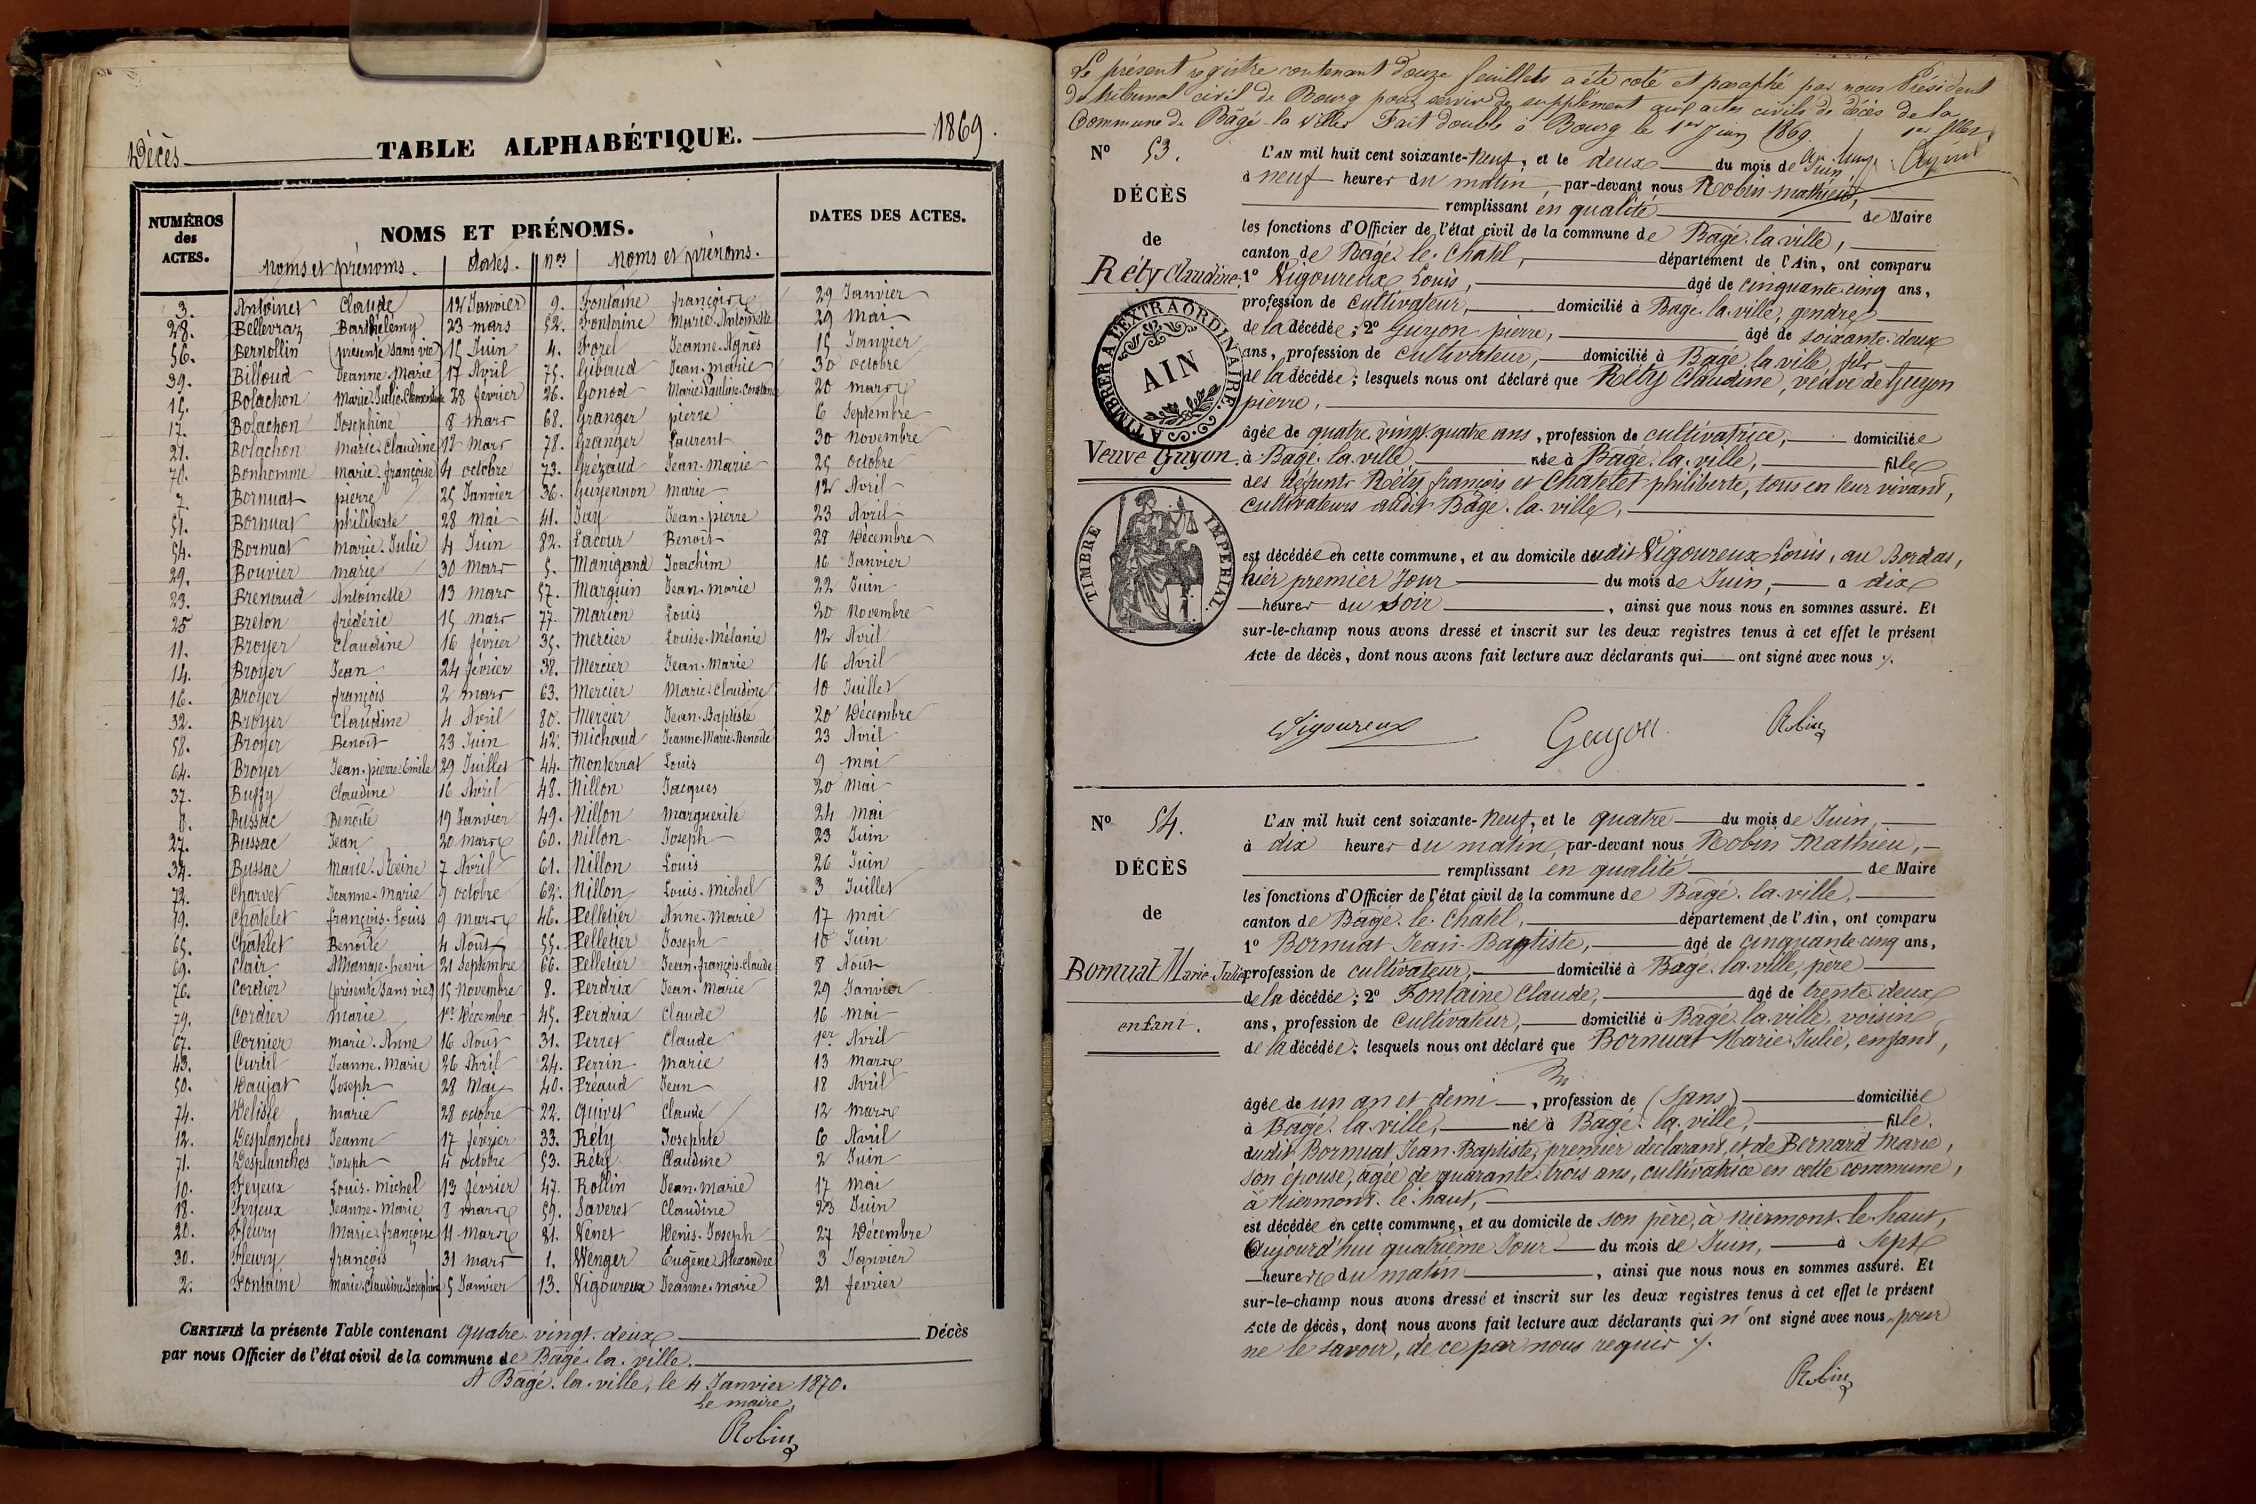 Décès TABLE ALPHABÉTIQUE. 1869.
NUMÉROS des ACTES. NOMS ET PRÉNOMS. DATES DES ACTES.
noms et prénoms. dates. nos noms et prénoms.
3. Antoinet Claude 12 Janvier 9. Fontaine françois 29 Janvier
28. Bellevraz Barthélemy 23 mars 52. Fontaine Marie-Antoinette 29 Mai
56. Bernollin (présenté sans vie) 15 Juin 4. Forel Jeanne-Agnès 15 Janvier
39. Billoud Jeanne-Marie 17 Avril 75. Giboud Jean-marie 30 octobre
15. Bolachon Marie-Julie-Clementine 28 février 26. Gonod Marie-Pauline-Constance 20 mars
17. Bolachon Josephine 8 mars 68. Granger pierre 6 Septembre
21. Bolachon Marie-Claudine 12 mars 78. Granger Laurent 30 novembre
70. Bonhomme marie-françoise 4 octobre 73. Grézaud Jean-marie 25 octobre
7. Bornuat pierre 25 Janvier 36. Guyennon marie 12 Avril
51. Bornuat philiberte 28 mai 41. Jay Jean-pierre 23 Avril
54. Bornuat Marie-Julie 4 Juin 82. Lacour Benoit 28 Décembre
29. Bouvier marie 30 mars 5. Manigand Joachim 16 Janvier
23. Brenaud Antoinette 13 mars 57. Marguin Jean-marie 22 Juin
25 Breton frédéric 15 mars 77. Marion Louis 20 novembre
11. Broyer Claudine 16 février 35. Mercier Louise-Mélanie 12 Avril
14. Broyer Jean 24 février 38. Mercier Jean-Marie 16 Avril
16. Broyer françois 2 mars 63. Mercier Marie-Claudine 10 Juillet
32. Broyer Claudine 4 Avril 80. Mercier Jean-Baptiste 20 Décembre
58. Broyer Benoit 23 Juin 42. Michaud Jeanne-Marie-Benoite 23 Avril
64. Broyer Jean-pierre-Emile 29 Juillet 44. Monterrat Louis 9 mai
37. Buffy Claudine 16 Avril 48. Nillon Jacques 20 mai
Bussac Benoite 19 Janvier 49. Nillon Marguerite 24 mai
27. Bussac Jean 20 mars 60. Nillon Joseph 23 Juin
34. Bussac Marie-Reine 7 Avril 61. Nillon Louis 26 Juin
72. Charvet Jeanne-Marie 9 octobre 62. Nillon Louis-michel 3 Juillet
19. Chatelet françois-Louis 9 mars 46. Pelletier Anne-Marie 17 mai
65. Chatelet Benoite 4 Août 55. Pelletier Joseph 10 Juin
69. Clair Athanase-henri 21 Septembre 66. Pelletier Jean-françois-Claude 8 Août
76. Cordier (présenté sans vie) 15 novembre 8. Perdrix Jean-Marie 29 Janvier
79. Cordier marie 1er Décembre 45. Perdrix Claude 16 mai
67. Cornier marie-Anne 16 Août 31. Perret Claude 1er Avril
43. Curtil Jeanne-Marie 26 Avril 24. Perrin marie 13 mars
50. Daujat Joseph 28 Mai 40. Préaud Jean 18 Avril
74. Delisle marie 28 octobre 22. Quivet Claude 12 mars
12. Desplanches Jeanne 17 février 33. Réty Josephte 6 Avril
71. Desplanches Joseph 4 octobre 53. Réty Claudine 2 Juin
10. Feyeux Louis-michel 13 février 47. Rollin Jean-marie 17 mai
18. Feyeux Jeanne-Marie 8 mars 59. Saveret Claudine 23 Juin
20. Fleury Marie-françoise 11 mars 81. Venet Denis-Joseph 27 Décembre
30. Fleury françois 31 mars 1. Venger Eugène-Alexandre 3 Janvier
2. Fontaine Marie-Claudine-Josephine 5 Janvier 13. Vigoureux Jeanne-marie 21 février
CERTIFIÉ la présente Table contenant quatre-vingt-deux Décès
par nous Officier de l'état civil de la commune de Bâgé-la-ville.
A Bâgé-la-ville, le 4 Janvier 1870.
Le maire,
Robin
Le présent registre contenant douze feuillets a été coté et paraphé par nous Président
du tribunal civil de Bourg pour servir de supplément aux actes civils de décès de la
Commune de Bâgé-la-Ville. Fait double à Bourg le 1er Juin 1869.
1er
No 53.
DÉCÈS
de
Réty Claudine
Veuve Guyon.
A TIMBRER A L'EXTRAORDINAIRE. AIN
TIMBRE IMPERIAL.
L'AN mil huit cent soixante-neuf, et le deux du mois de Juin,
à neuf heures du matin, par-devant nous Robin Mathieu,
remplissant en qualité de Maire
les fonctions d'Officier de l'état civil de la commune de Bâgé-la-ville,
canton de Bâgé-le-Chatel, département de l'Ain, ont comparu
1o Vigoureux Louis, âgé de cinquante-cinq ans,
profession de cultivateur, domicilié à Bâgé-la-ville, gendre
de la décédée; 2o Guyon pierre, âgé de soixante-deux
ans, profession de cultivateur, domicilié à Bâgé-la-ville, fils
de la décédée; lesquels nous ont déclaré que Réty Claudine, veuve de Guyon
pierre,
âgée de quatre-vingt-quatre ans, profession de cultivatrice, domiciliée
à Bâgé-la-ville née à Bâgé-la-ville, fille
des défunts Réty françois et Châtelet philiberte, tous en leur vivant,
cultivateurs audit Bâgé-la-ville,
est décédée en cette commune, et au domicile dudit Vigoureux Louis, au Bordat,
hier premier Jour du mois de Juin, à dix
heures du soir, ainsi que nous nous en sommes assuré. Et
sur-le-champ nous avons dressé et inscrit sur les deux registres tenus à cet effet le présent
Acte de décès, dont nous avons fait lecture aux déclarants qui ont signé avec nous
Vigoureux Guyon Robin
No 54.
DÉCÈS
de
Bornuat Marie-Julie
enfant.
L'AN mil huit cent soixante-neuf, et le quatre du mois de Juin,
à dix heures du matin, par-devant nous Robin Mathieu,
remplissant en qualité de Maire
les fonctions d'Officier de l'état civil de la commune de Bâgé-la-ville,
canton de Bâgé-le-Chatel, département de l'Ain, ont comparu
1o Bornuat Jean-Baptiste, âgé de cinquante-cinq ans,
profession de cultivateur, domicilié à Bâgé-la-ville, père
de la décédée; 2o Fontaine Claude, âgé de trente-deux
ans, profession de cultivateur, domicilié à Bâgé-la-ville, voisin
de la décédée; lesquels nous ont déclaré que Bornuat Marie-Julie, enfant,
âgée de un an et demi, profession de (sans) domiciliée
à Bâgé-la-ville, née à Bâgé-la-ville, fille
dudit Bornuat Jean-Baptiste, premier déclarant, et de Bernard Marie,
son épouse, âgée de quarante-trois ans, cultivatrice en cette commune,
à niermont-le-haut,
est décédée en cette commune, et au domicile de son père, à niermont-le-haut,
Aujourd'hui quatrième Jour du mois de Juin, à Sept
heures du matin, ainsi que nous nous en sommes assuré. Et
sur-le-champ nous avons dressé et inscrit sur les deux registres tenus à cet effet le présent
Acte de décès, dont nous avons fait lecture aux déclarants qui n'ont signé avec nous, pour
ne le savoir, de ce par nous requis
Robin